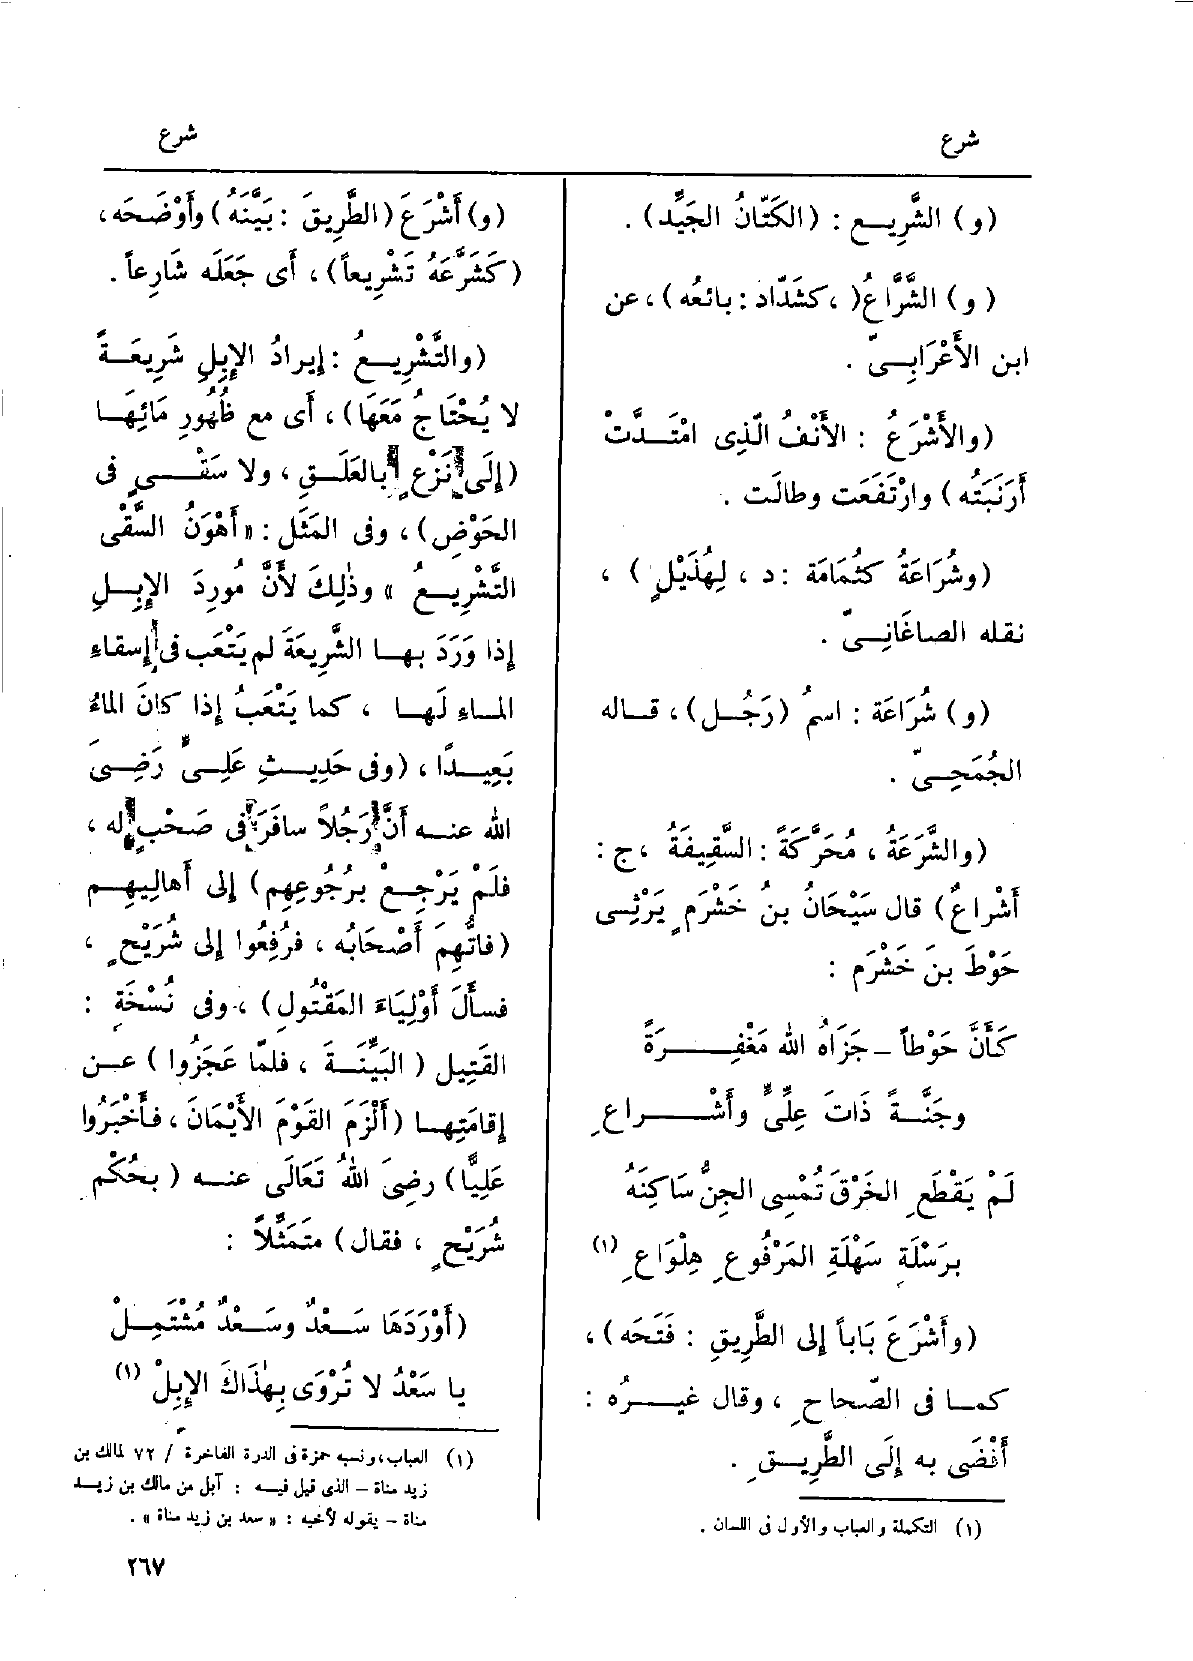 شرع
شرع
(و) الشَّرِيــع : (الكَتّانُ الجَيِّد) .
(و) الشَّرَّاعُ(، كشَدّاد: بائعُه)، عن
ابن الأَعْرَابِــىّ .
(والأَشْرَعُ : الأَنْفُ الَّذِى امْتَــدَّتْ
أَرْنَبَتُه) وارْتَفَعَت وطالَت .
(وشُرَاعَةُ كثُمَامَة : د ، لِهُذَيْلٍ) ،
نقله الصاغَانِــىّ .
(و) شُرَاعَة : اسمُ (رَجُــل)، قــاله
الجُمَحِــىّ .
(والشَّرَعَةُ ، مُحَرَّكَةً : السَّقِيفَةُ ، ج :
أَشْراعٌ) قال سَيْحَانُ بنُ خَشْرَمٍ يَرْثِــى
حَوْطَ بنَ خَشْرَم :
كَأَنَّ حَوْطاً ــ جَزَاهُ الله مَغْفِــــرَةً
وجَنَّــةً ذَاتَ عِلِّىٍّ وأَشْــــراعِ
لَمْ يَقْطَعِ الخَرْقَ تُمْسِى الجِنُّ سَاكِنَهُ
برَسْلَةِ سَهْلَةِ المَرْفُوعِ هِلْوَاعِ (١)
(وأَشْرَعَ بَاباً إلى الطَّرِيقِ : فَتَحَه)،
كمــا فى الصّحاحِ ، وقال غيــرُه :
أَفْضَى به إِلَى الطَّرِيــقِ .
(١) التكملة والعباب والأول فى اللسان .
(و) أَشْرَعَ (الطَّرِيقَ : بَيَّنَهُ) وأَوْضَحَه،
(كَشَرَّعَهُ تَشْرِيعاً)، أَى جَعَلَه شَارِعاً .
(والتَّشْرِيــعُ : إيرادُ الإِبِلِ شَرِيعَــةً
لا يُحْتَاجُ مَعَهَا)، أَى مع ظُهُورِ مَائِهَــا
(إلَى نَزْعٍ بالعَلَــقِ، ولا سَقْــىٍ فى
الحَوْضِ)، وفى المَثَل : «أَهْوَنُ السَّقْىِ
التَّشْرِيــعُ » وذٰلِكَ لأَنَّ مُورِدَ الإِبِــلِ
إذا وَرَدَ بهــا الشَّرِيعَةَ لم يَتْعَب فى إسقاءِ
المــاءِ لَهــا ، كما يَتْعَبُ إذا كانَ الماءُ
بَعِيــدًا ، (وفى حَدِيــثِ عَلِــىٍّ رَضِــىَ
الله عنــه أَنَّ رَجُلاً سافَرَ فى صَحْبٍ له ،
فلَمْ يَرْجِــعْ برُجُوعِهِم) إلى أَهالِيهِــم
(فاتُّهِمَ أَصْحَابُه ، فرُفِعُوا إلى شُرَيْحٍ ،
فسأَلَ أَوْلِيَاءَ المَقْتُولِ) ، وفى نُسْخَةٍ :
القَتِيل (البَيِّنَــةَ ، فلمّا عَجَزُوا ) عــن
إقامَتِهــا (أَلْزَمَ القَوْمَ الأَيْمَانَ ، فــأَخْبَرُوا
عَلِيًّا) رضِىَ اللهُ تَعَالَى عنــه (بحُكْمِ
شُرَيْحٍ ، فقال) متَمَثِّلاً :
(أَوْرَدَهَا سَــعْدٌ وسَــعْدٌ مُشْتَمِــلْ
يا سَعْدُ لا تُرْوَى بِهٰذَاكَ الإِبِلْ (١)
(١) العباب، ونسبه حمزة فى الدرة الفاخرة / ٧٢ لمالك بن
زيد مناة ــ الذى قيل فيــه : آبل من مالك بن زيــد
مناة ــ يقوله لأخيه : « سعد بن زيد مناة » .
٢٦٧